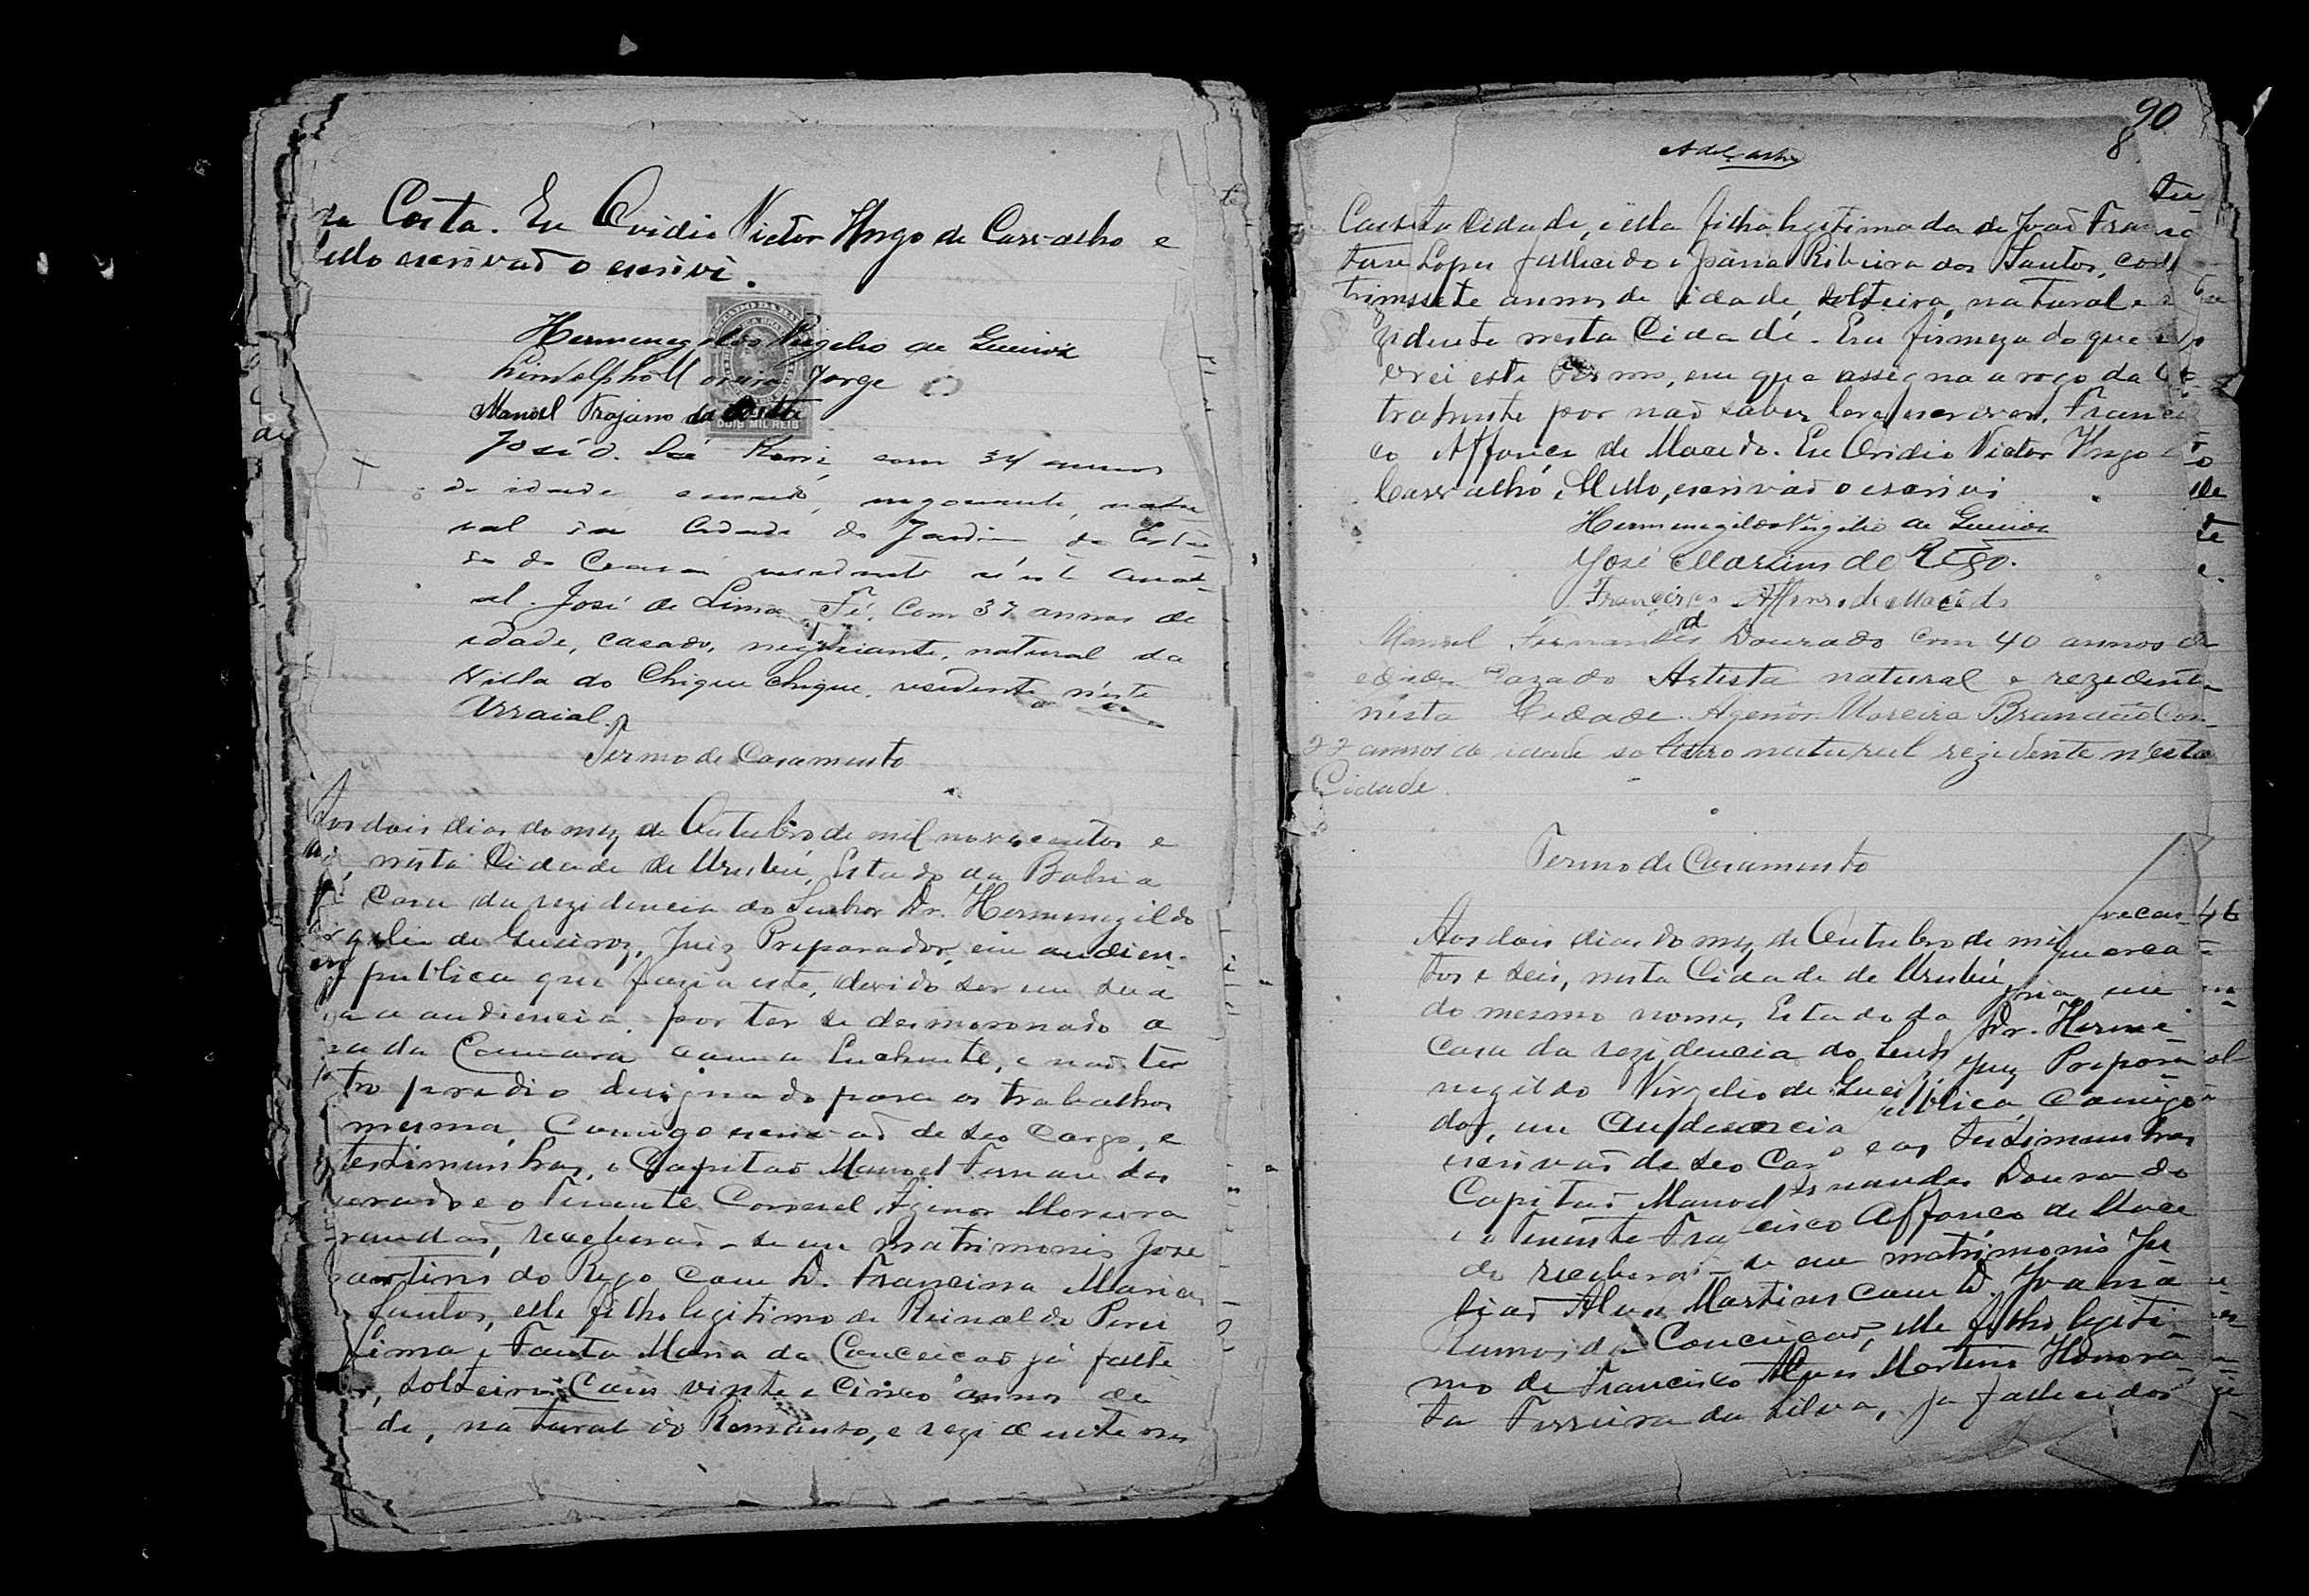 da Costa. Eu Ovidio Victor Hugo de Carvalho e
Mello escrivaõ o escrivi.
Hermenegildo Virgilio de Gueiroz
Lindolpho Moreira Jorge
Manoel Trajano da Costa
DOIS MIL REIS
José com 34 annos
de idade casado, negociante, natu
ral da Cidade do Jardim do Esta
do do Ceará residente n'este Arrai
al. José de Lima Fé, com 37 annos de
idade, casado, negociante, natural da
Villa do Chique chique, residente n'este
Arraial.
Termo de Casamento
Aos dois dias do mez de Outubro de mil novecentos e
nesta Cidade de Urubú, Estado da Bahia
casa da rezidencia do Senhor Dr. Hermenegildo
de Gueiroz, Juiz Preparador, em audien-
publica que fazia este, devido ser em sua
a audiencia, por ter se desmoronado a
da Camara com a Enchente, e naõ ter
tro predio designado para os trabalhos
mesma, Comigo escrivaõ de seo Cargo, e
testimunhas, o Capitaõ Manoel Fernandes
ourado e o Tenente Coronel Agenor Moreira
randaõ, receberaõ-se em matrimonio José
artins do Rego com D. Francina Maria
Santos, elle filho legitimo de Reinaldo Perei
Lima e Fausta Maria da Conceiçaõ já falle
, solteiro, com vinte e cinco annos de
de, natural do Remanso, e rezidente nes
90
8
ta Cidade, e ella filha legitimada de Joaõ Fran
Lopes fallecido e Joana Ribeira dos Santos, com
trinssete annos de idade, solteira, natural e
zidente nesta Cidade. Eu firmeza do que
vrei este Termo, em que assigna a rogo da
trahente por naõ saber ler e escrever, Franci
co Affonço de Macedo. Eu Ovidio Victor Hugo
Carvalho e Mello, escrivaõ o escrivi
Hermenegildo Virgilio de Gueiroz
José Martins do Rêgo.
Francisco Affonso de Macêdo
Manoel Fernandes Dourado com 40 annos de
edade Cazado Artista natural e rezidente
nésta Cidade. Agenôr Moreira Brandão Com
22 annos de idade solteiro natural rezidente n'esta
Cidade.
Termo de Casamento
Aos dois dias do mez de Outubro de mil novecen
tos e seis, nesta Cidade de Urubú, comarca
do mesmo nome, Estado da Bahia, em
casa da rezidencia do Senhor Dr. Herme
negildo Virgilio de Gueiroz, Juiz Prepara
dor, em Audencia publica, Comigo
escrivaõ de seo Cargo e as testimunhas
Capitaõ Manoel Fernandes Dourado
e o Tenente Francisco Affonço de Mace
do receberaõ-se em matrimonio Ju
liaõ Alves Martins com D. Joanna
Ramos da Conceiçaõ, elle filho legiti
mo de Francisco Alves Martins Honora
ta Ferreira da Silva, já fallecidos